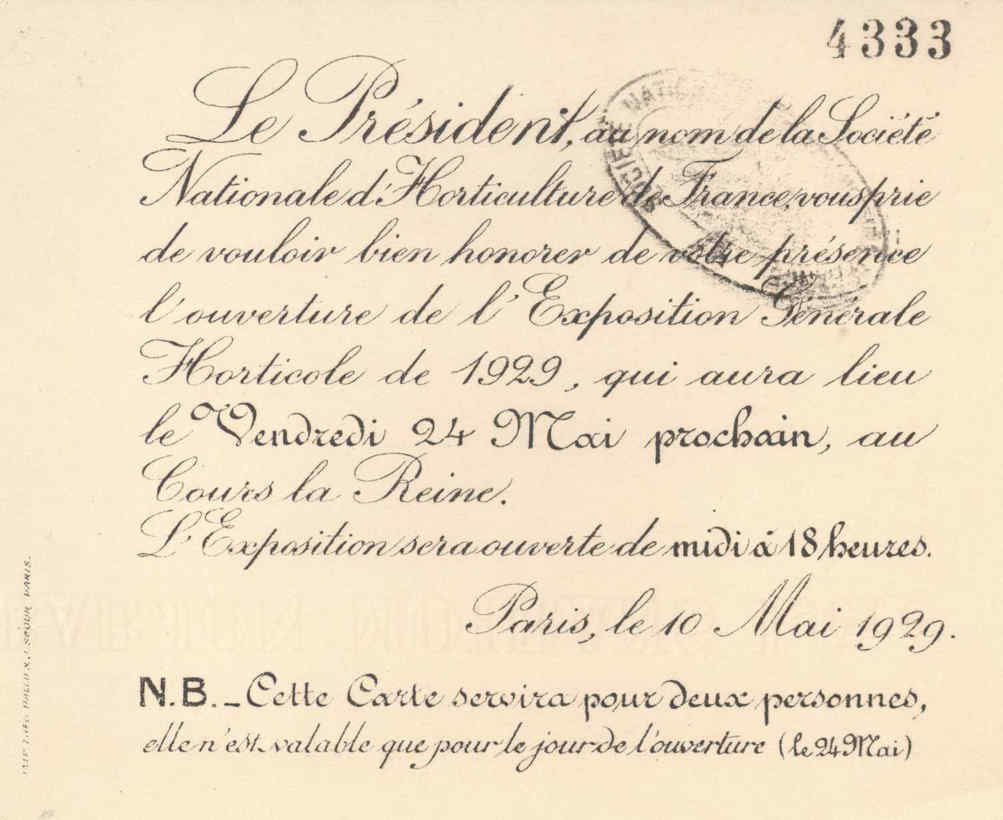 4333
Le Président, au nom de la Société
Nationale d'Horticulture de France, vous prie
de vouloir bien honorer de votre présence
l'ouverture de l'Exposition Générale
Horticole de 1929, qui aura lieu
le Vendredi 24 Mai prochain, au
Cours la Reine.
L'Exposition sera ouverte de midi à 18 heures.
Paris, le 10 Mai 1929.
N.B. _ Cette Carte servira pour deux personnes,
elle n'est valable que pour le jour de l'ouverture (le 24 Mai)
SOCIÉTÉ NATIO
PARIS.